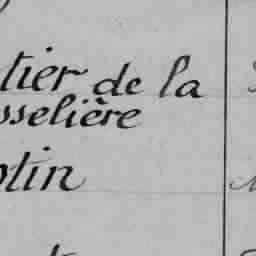 tier de la
sselière
otin